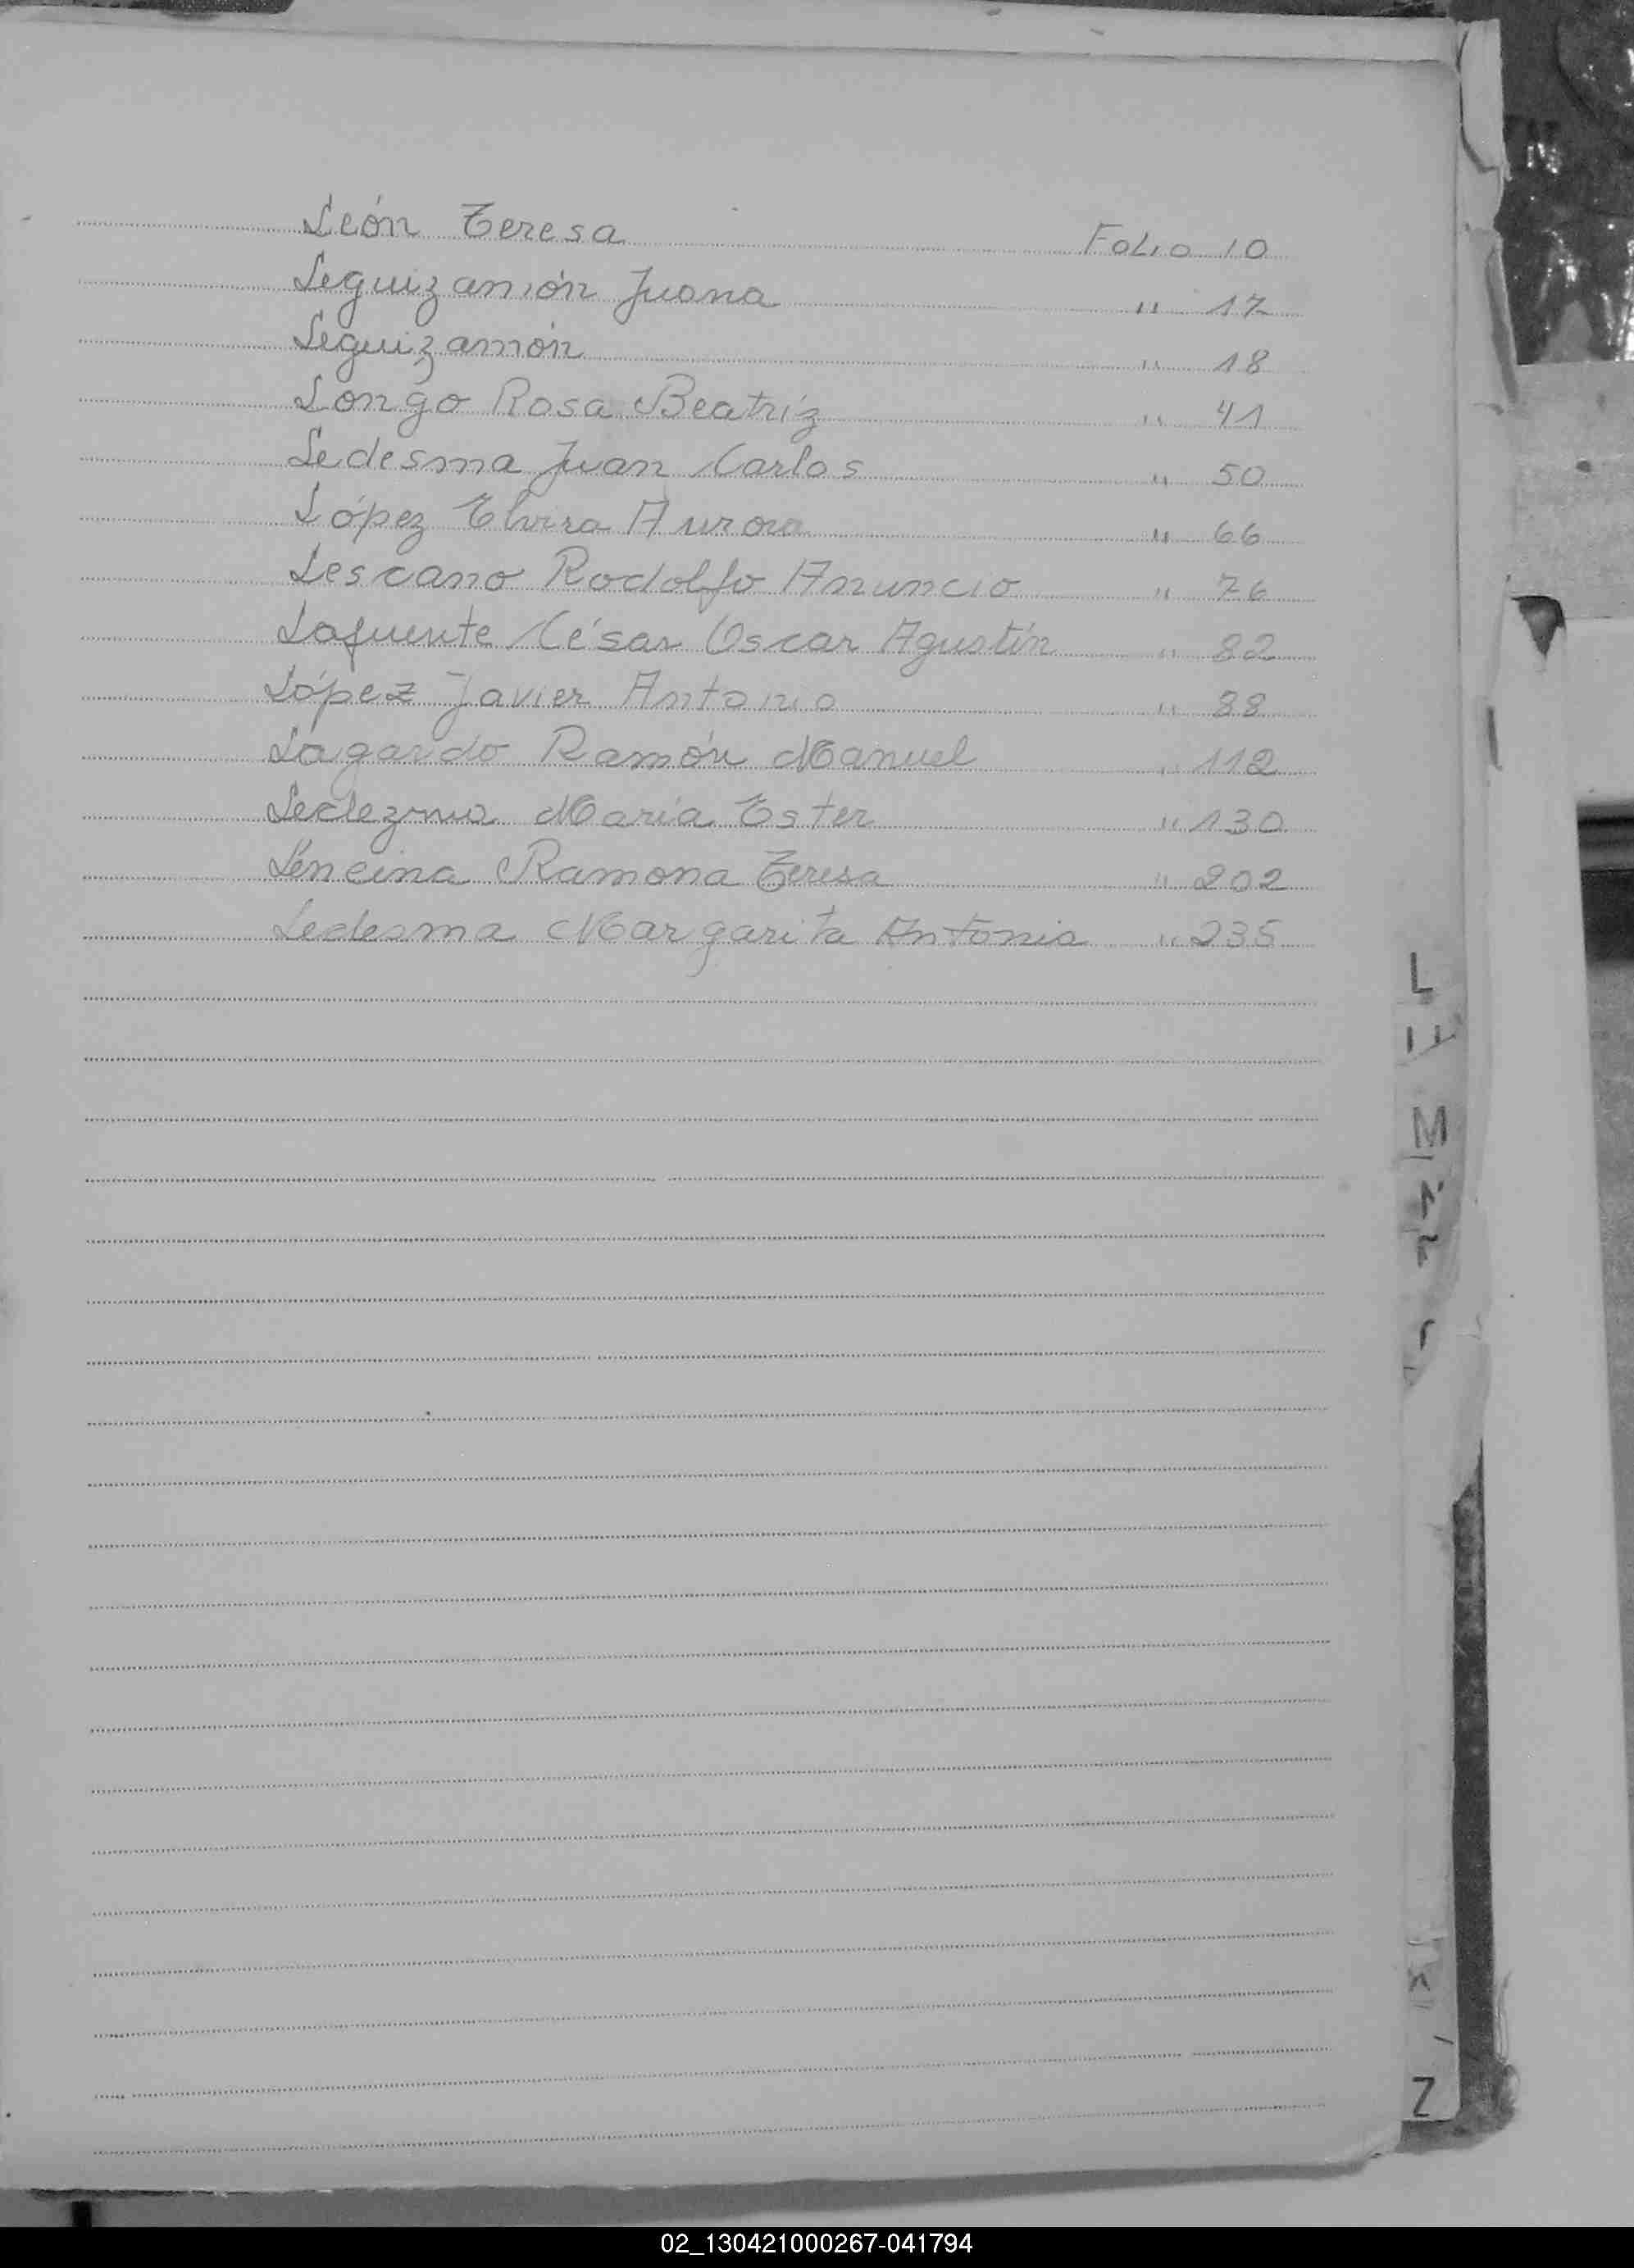 León Teresa Folio 10
Leguizamón Juana " 17
Leguizamón " 18
Longo Rosa Beatríz " 41
Ledesma Juan Carlos " 50
López Elvira Aurora " 66
Lescano Rodolfo Anuncio " 76
Lafuente César Oscar Agustín " 82
López Javier Antonio " 88
Lagardo Ramón Manuel " 112
Ledezma María Ester " 130
Lencina Ramona Teresa " 202
Ledesma Margarita Antonia " 235
L
M
Z
02_130421000267-041794